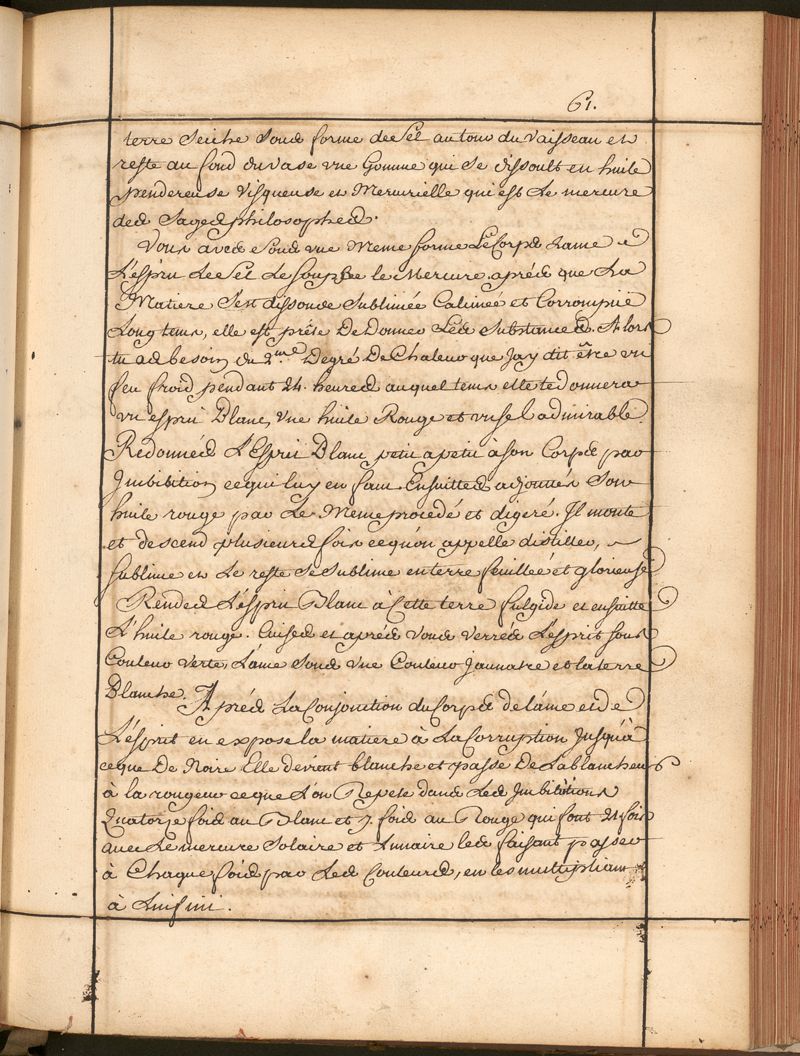 61.
terre seiche soub forme de Sel autour du Vaisseau et
reste au fond du vase vne Gomme qui se dissoult en huile
pendereuse Visqueuse et Mercurielle qui est Le mercure
des Sages philosophes.
Vous aves soub vne Meme forme Le Corps Lame
L'esprit Le Sel Le souphre le Mercure aprés que La
Matiere s'est dissoude sublimée Calinée et Corrompuë
Long tems, elle est préte De Donner Les Substances. Alors
tu as besoin du 2.me Degré De Chaleur que Jay dit être vn
feu froid pendant 24. heures auquel tems elle te donnera
vn esprit Blanc, Vne huile Rouge et vn sel admirable.
Redonnés L'Esprit Blanc petit a petit à son Corps par
Jmbibition ce qui luy en faut Ensuittes adjoutés Son
huile rouge par Le Meme procedé et digeré. Jl monte
et descend plusieurs fois ce qu'on appelle distiller,
Sublime et Le reste se Sublime en terre feuilleé et glorieuse
Rendes L'esprit Blanc à Cette terre fulgide et ensuitte
L'huile rouge. Cuises et aprés Vous verrés L'esprit sous
Couleur verte, L'ame sous vne Couleur jaunatre et la terre
Blanche. Aprés La Conjonction du Corps de l'áme et de
L'ésprit on expose la matiere à La Corruption Jusqu'à
ce que De Noire Elle devient blanche et passe De La blancheur
à la rougeur ce que L'on Repete dans Les Jmbibitions
Quatorze fois au Blanc et 7. fois au Rouge qui font 21 fois
avec Le mercure Solaire et Lunaire les faisant passer
à Chaque fois par Les Couleurs, en les multipliant
à Linfini.